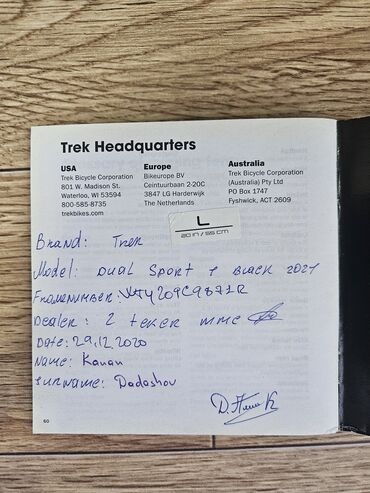 Trek Headquarters
USA
Trek Bicycle Corporation
801 W. Madison St.
Waterloo, WI 53594
800-585-8735
trekbikes.com
Europe
Bikeurope BV
Ceintuurbaan 2-20C
3847 LG Harderwijk
The Netherlands
Australia
Trek Bicycle Corporation
(Australia) Pty Ltd
PO Box 1747
Fyshwick, ACT 2609
L
20 in / 55 cm
Brand: Trek
Model: Dual Sport 1 Black 2021
Framenumber:
Dealer: 2 teker mmc
Date: 29.12.2020
Name: Kanan
Surname: Dadashov
60